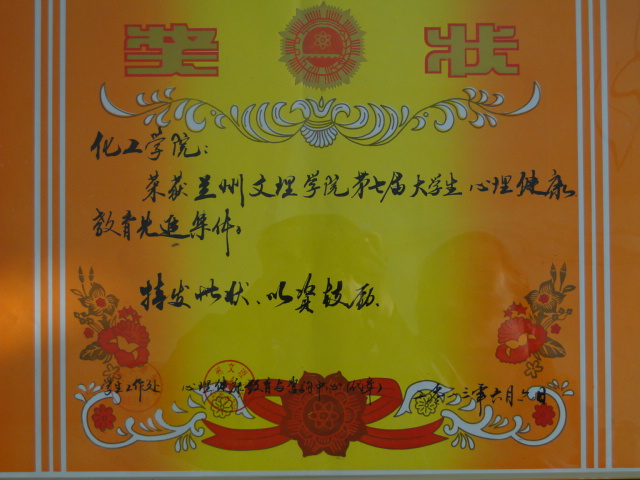 奖状
化工学院:
荣获兰州文理学院第七届大学生心理健康
教育先进集体,
特发此状、以资鼓励.
学生工作处 心理健康教育与咨询中心(代章) 二零一三年六月 日